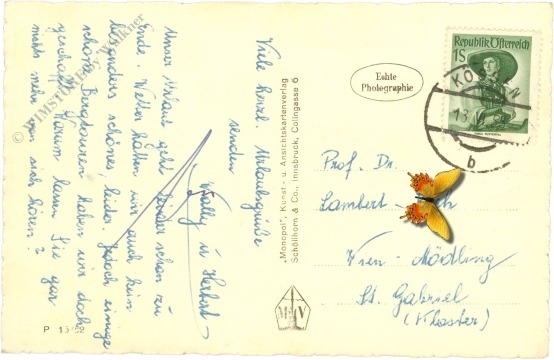 Viele herzl. Urlaubsgrüße
senden
Wally u Herbert
Unser Urlaub geht leider schon zu
Ende. Wetter hatten wir auch kein
besonders schönes, leider. Jedoch einige
schöne Bergtouren haben wir doch
geschafft. Warum lassen Sie gar
nichts mehr von sich hören?
P 13
"Monopol", Kunst- u. Ansichtskartenverlag
Schöllhorn & Co., Innsbruck, Colingasse 6
Echte
Photographie
Republik Österreich
1S
b
Prof. Dr.
Lambert
Wien-Mödling
St. Gabriel
(Kloster)
M V